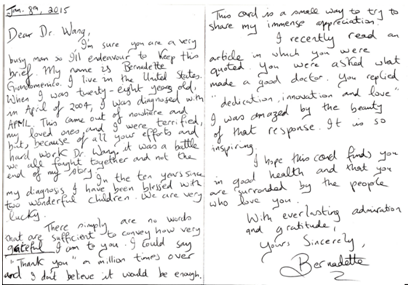 Jan. 8th, 2015
Dear Dr. Wang,
I'm sure you are a very
busy man so I'll endeavour to keep this
brief. My name is Bernadette
I live in the United States.
When I was twenty-eight years old,
in April of 2004, I was diagnosed with
APML. This came out of nowhere and
my loved ones and I were terrified,
but, because of all your efforts and
hard work Dr. Wang, it was a battle
we all fought together and not the
end of my story.
In the ten years since
my diagnosis I have been blessed with
two wonderful children. We are very
lucky.
There simply are no words
that are sufficient to convey how very
grateful I am to you. I could say
"Thank you" a million times over
and I don't believe it would be enough.
This card is a small way to try to
share my immense appreciation.
I recently read an
article in which you were
quoted. You were asked what
made a good doctor. You replied
"dedication, innovation and love"
I was amazed by the beauty
of that response. It is so
inspiring.
I hope this card finds you
in good health and that you
are surrounded by the people
who love you.
With everlasting admiration
and gratitude,
Yours Sincerely,
Bernadette